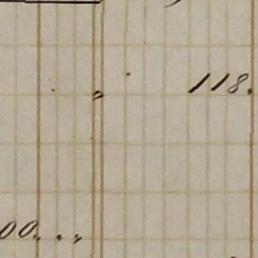 " 118.
00. . . ,